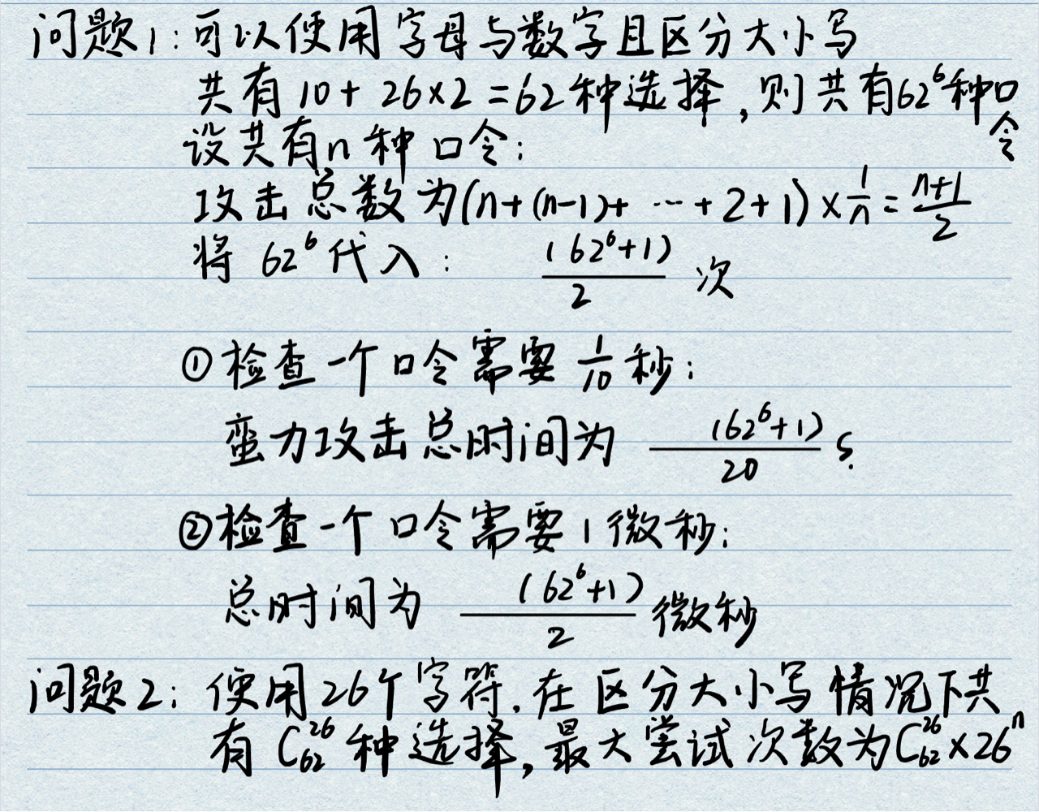 问题1:可以使用字母与数字且区分大小写
共有 10+26×2=62种选择,则共有62⁶种口令
设共有n种口令:
攻击总数为(n+(n-1)+…+2+1)×1/n=(n+1)/2
将 62⁶代入: (62⁶+1)/2 次
①检查一个口令需要 1/10 秒:
蛮力攻击总时间为 (62⁶+1)/20 s.
②检查一个口令需要1微秒:
总时间为 (62⁶+1)/2 微秒
问题2:使用26个字符.在区分大小写情况下共
有 C₆₂²⁶ 种选择,最大尝试次数为C₆₂²⁶×26ⁿ